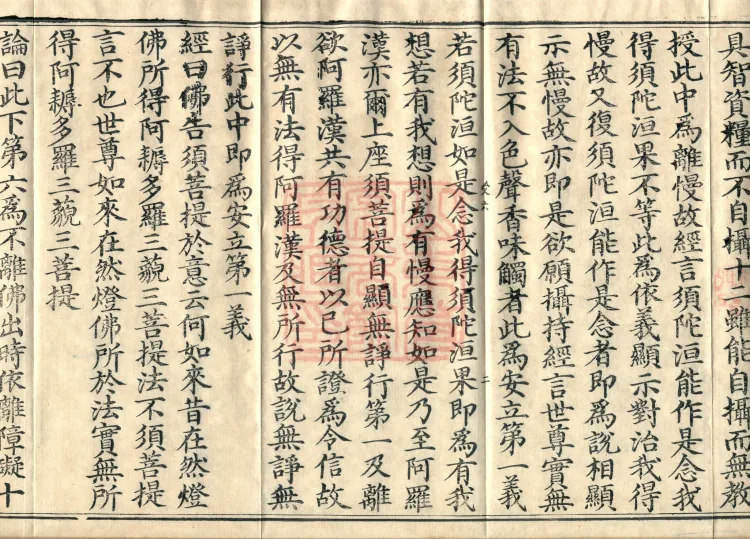 具智資糧而不自攝十二雖能自攝而無教
授此中為離慢故經言須陀洹能作是念我
得須陀洹果不等此為依義顯示對治我得
慢故又復須陀洹能作是念者即為說相顯
示無慢故亦即是欲願攝持經言世尊實無
有法不入色聲香味觸者此為安立第一義
若須陀洹如是念我得須陀洹果即為有我
想若有我想則為有慢應知如是乃至阿羅
漢亦爾上座須菩提自顯無諍行第一及離
欲阿羅漢共有功德者以已所證為令信故
以無有法得阿羅漢及無所行故說無諍無
諍行此中即為安立第一義
經曰佛告須菩提於意云何如來昔在然燈
佛所得阿耨多羅三藐三菩提法不須菩提
言不也世尊如來在然燈佛所於法實無所
得阿耨多羅三藐三菩提
論曰此下第六為不離佛出時依離障礙十